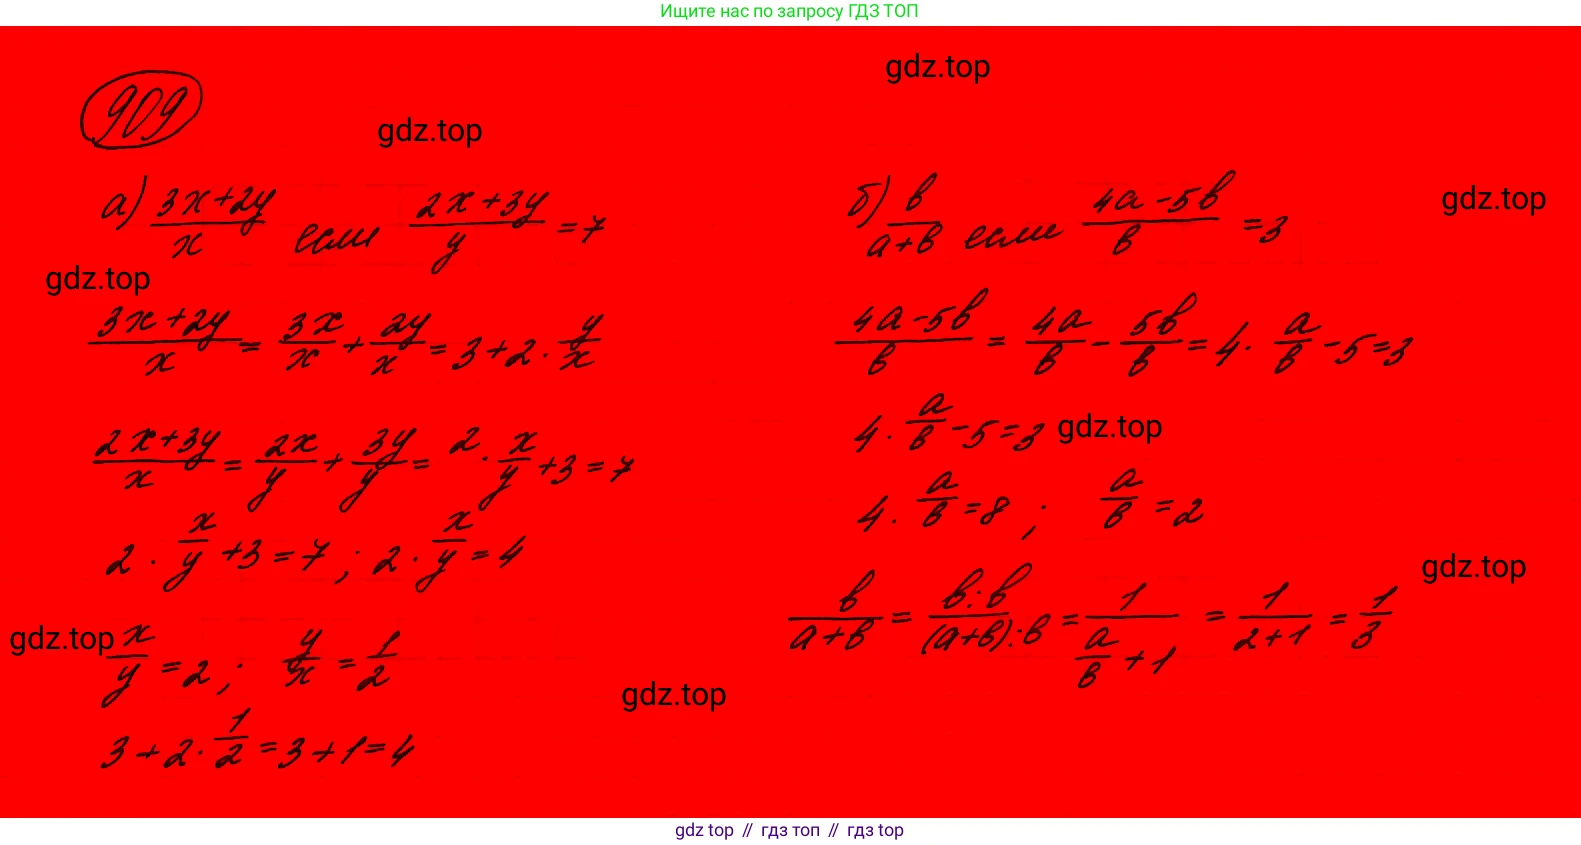 Ищите нас по запросу ГДЗ ТОП
909
gdz.top
gdz.top
а) (3x+2y)/x если (2x+3y)/y = 7
gdz.top
(3x+2y)/x = 3x/x + 2y/x = 3+2·y/x
(2x+3y)/x = 2x/y + 3y/y = 2·x/y + 3 = 7
2·x/y + 3 = 7; 2·x/y = 4
gdz.top
x/y = 2; y/x = 1/2
3+2·1/2 = 3+1 = 4
б) в/(а+в) если (4а-5в)/в = 3
gdz.top
(4а-5в)/в = 4а/в - 5в/в = 4·а/в - 5 = 3
4·а/в - 5 = 3
gdz.top
4·а/в = 8; а/в = 2
gdz.top
в/(а+в) = в:в/(а+в):в = 1/(а/в + 1) = 1/(2+1) = 1/3
gdz.top
gdz top // гдз топ // гдз top